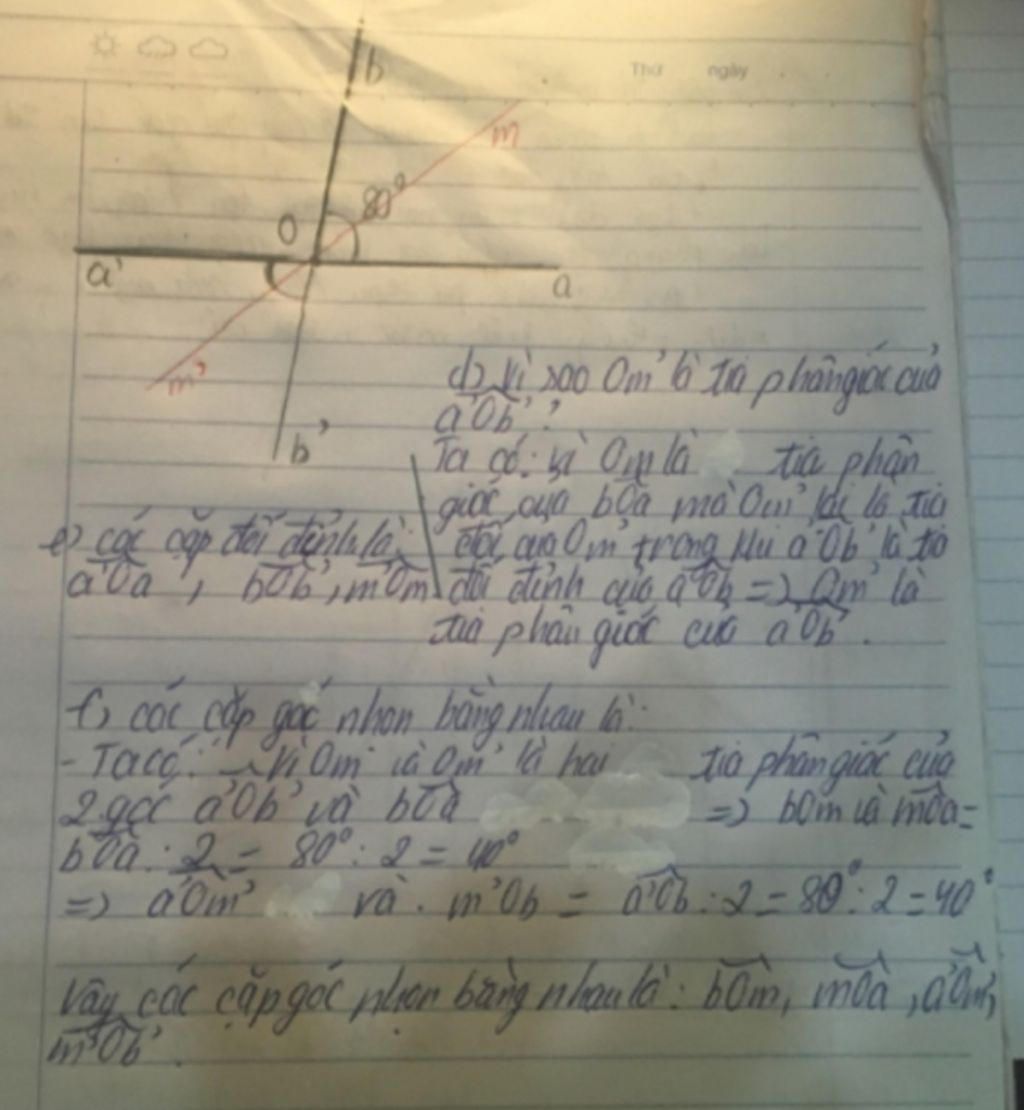 Thứ ngày
b
m
80°
O
a'
a
m'
b'
d) Vì sao Om' là tia phân giác của
a'Ob' ?
Ta có: vì Om là tia phân
giác của bOa mà Om' là tia
đối của Om trong khi a'Ob' là
đối đỉnh của aOb => Om' là
tia phân giác của a'Ob'.
e) các cặp đối đỉnh là:
a'Oa , bOb', m'Om
f) các cặp góc nhọn bằng nhau là:
- Ta có: Vì Om và Om' là hai tia phân giác của
2 góc a'Ob' và bOa => bOm và mOa =
bOa : 2 = 80° : 2 = 40°
=> a'Om' và m'Ob = a'Ob : 2 = 80° : 2 = 40°
Vậy các cặp góc nhọn bằng nhau là: bOm, mOa, a'Om',
m'Ob'.